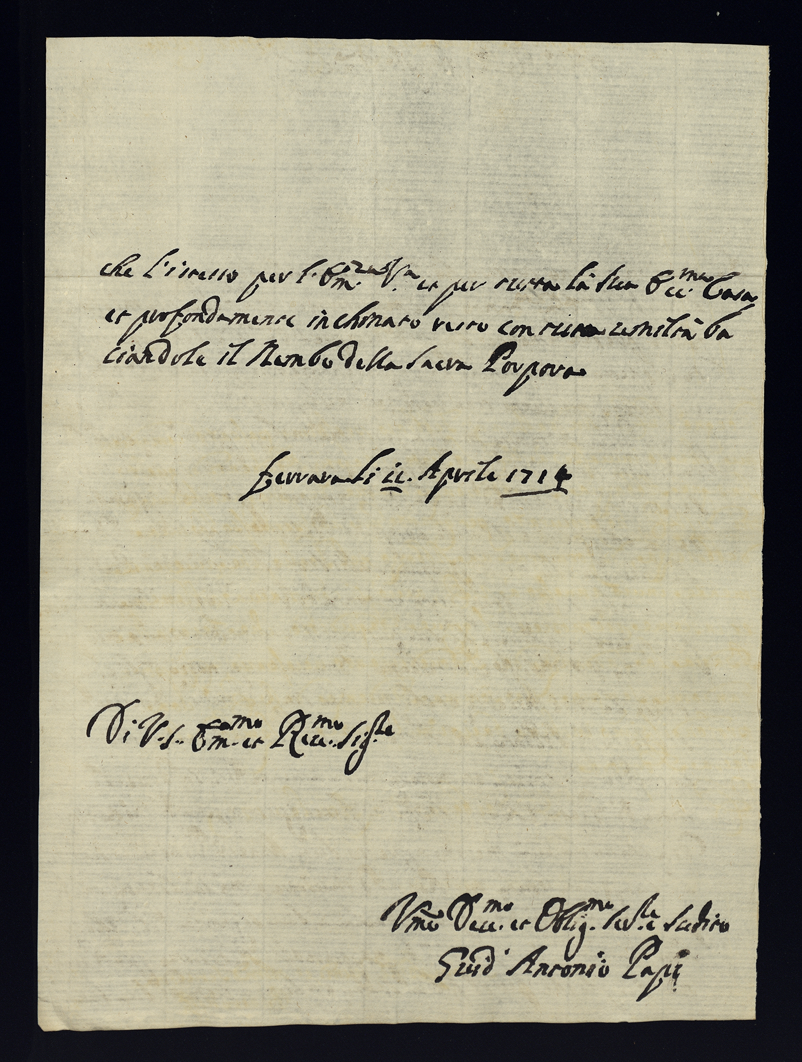 che l'istesso per l'Em.za V.a et per tutta la sua Ecc.ma Casa,
et profondamente inchinato resto con tutta umiltà ba
ciandole il Nembo della Sacra Porpora
Ferrara li 11. Aprile 1714
Di V. S. Em.ma et Rev.ma Sig.
Um.o Dev.mo et Oblig.mo Ser.e e Sudito
Guid' Antonio Papi